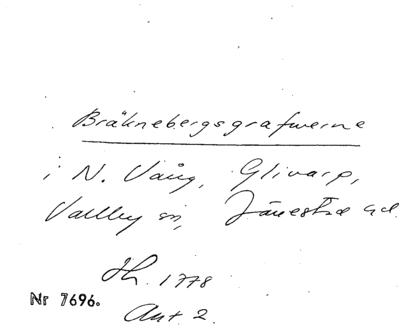 Bräknebergsgrafwerne
i N. Vång, Glivarp,
Valleby sn,
Th. 1778
Nr 7696.
Ant 2.